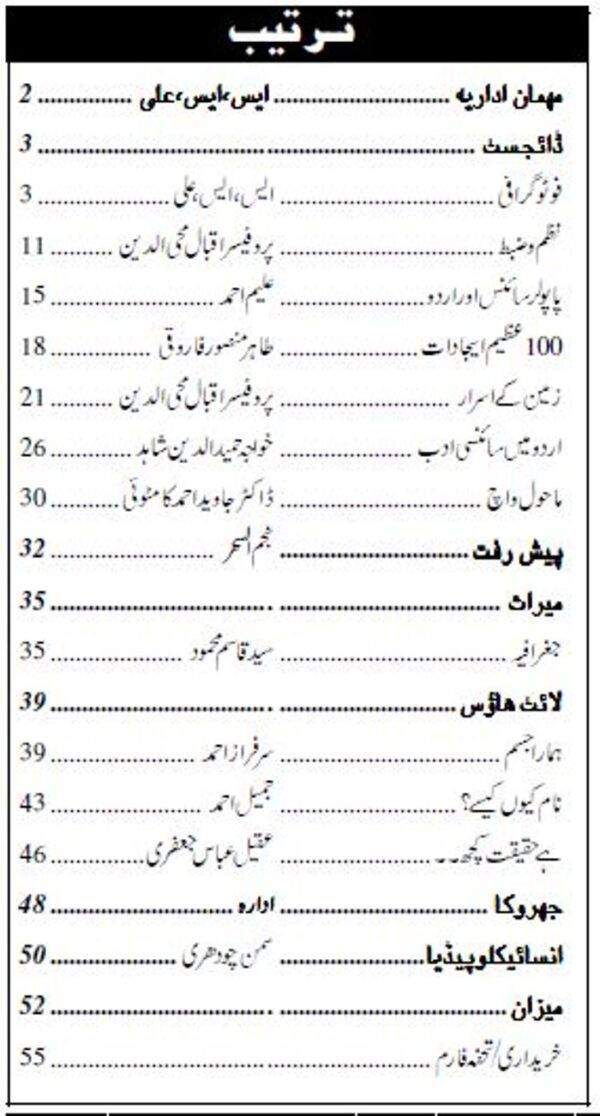 ترتیب
مہمان اداریہ ........ ایس،ایس،علی ........ 2
ڈائجسٹ ........ 3
فوٹوگرافی ........ ایس،ایس،علی ........ 3
نظم و ضبط ........ پروفیسر اقبال محی الدین ........ 11
پاپولر سائنس اور اردو ........ علیم احمد ........ 15
100 عظیم ایجادات ........ طاہر منصور فاروقی ........ 18
زمین کے اسرار ........ پروفیسر اقبال محی الدین ........ 21
اردو میں سائنسی ادب ........ خواجہ حمید الدین شاہد ........ 26
ماحول واچ ........ ڈاکٹر جاوید احمد کامٹوئی ........ 30
پیش رفت ........ نجم السحر ........ 32
میراث ........ 35
جغرافیہ ........ سید قاسم محمود ........ 35
لائٹ ھاؤس ........ 39
ہمارا جسم ........ سرفراز احمد ........ 39
نام کیوں کیسے؟ ........ جمیل احمد ........ 43
ہے حقیقت کچھ۔۔ ........ عقیل عباس جعفری ........ 46
جھروکا ........ ادارہ ........ 48
انسائیکلوپیڈیا ........ سمن چودھری ........ 50
میزان ........ 52
خریداری/تحفہ فارم ........ 55